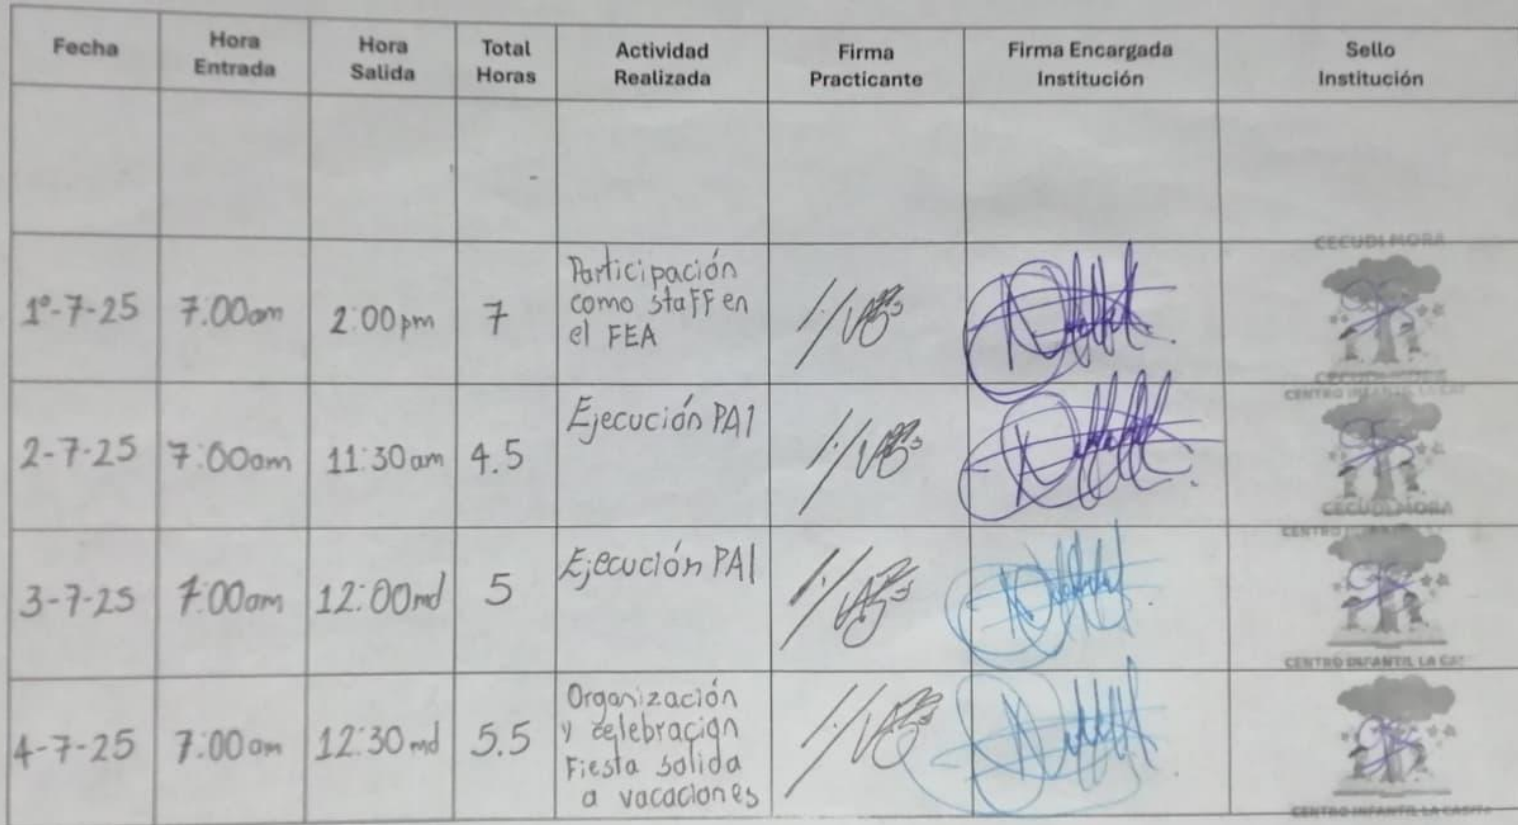 Fecha
Hora Entrada
Hora Salida
Total Horas
Actividad Realizada
Firma Practicante
Firma Encargada Institución
Sello Institución
CECUDI MORA
1°-7-25
7:00am
2:00pm
7
Participación
como staff en
el FEA
2-7-25
7:00am
11:30am
4.5
Ejecución PAI
CECUDI MORA
3-7-25
7:00am
12:00md
5
Ejecución PAI
CENTRO INFANTIL LA
4-7-25
7:00am
12:30md
5.5
Organización
y celebración
Fiesta salida
a vacaciones
CENTRO INFANTIL LA CASITA